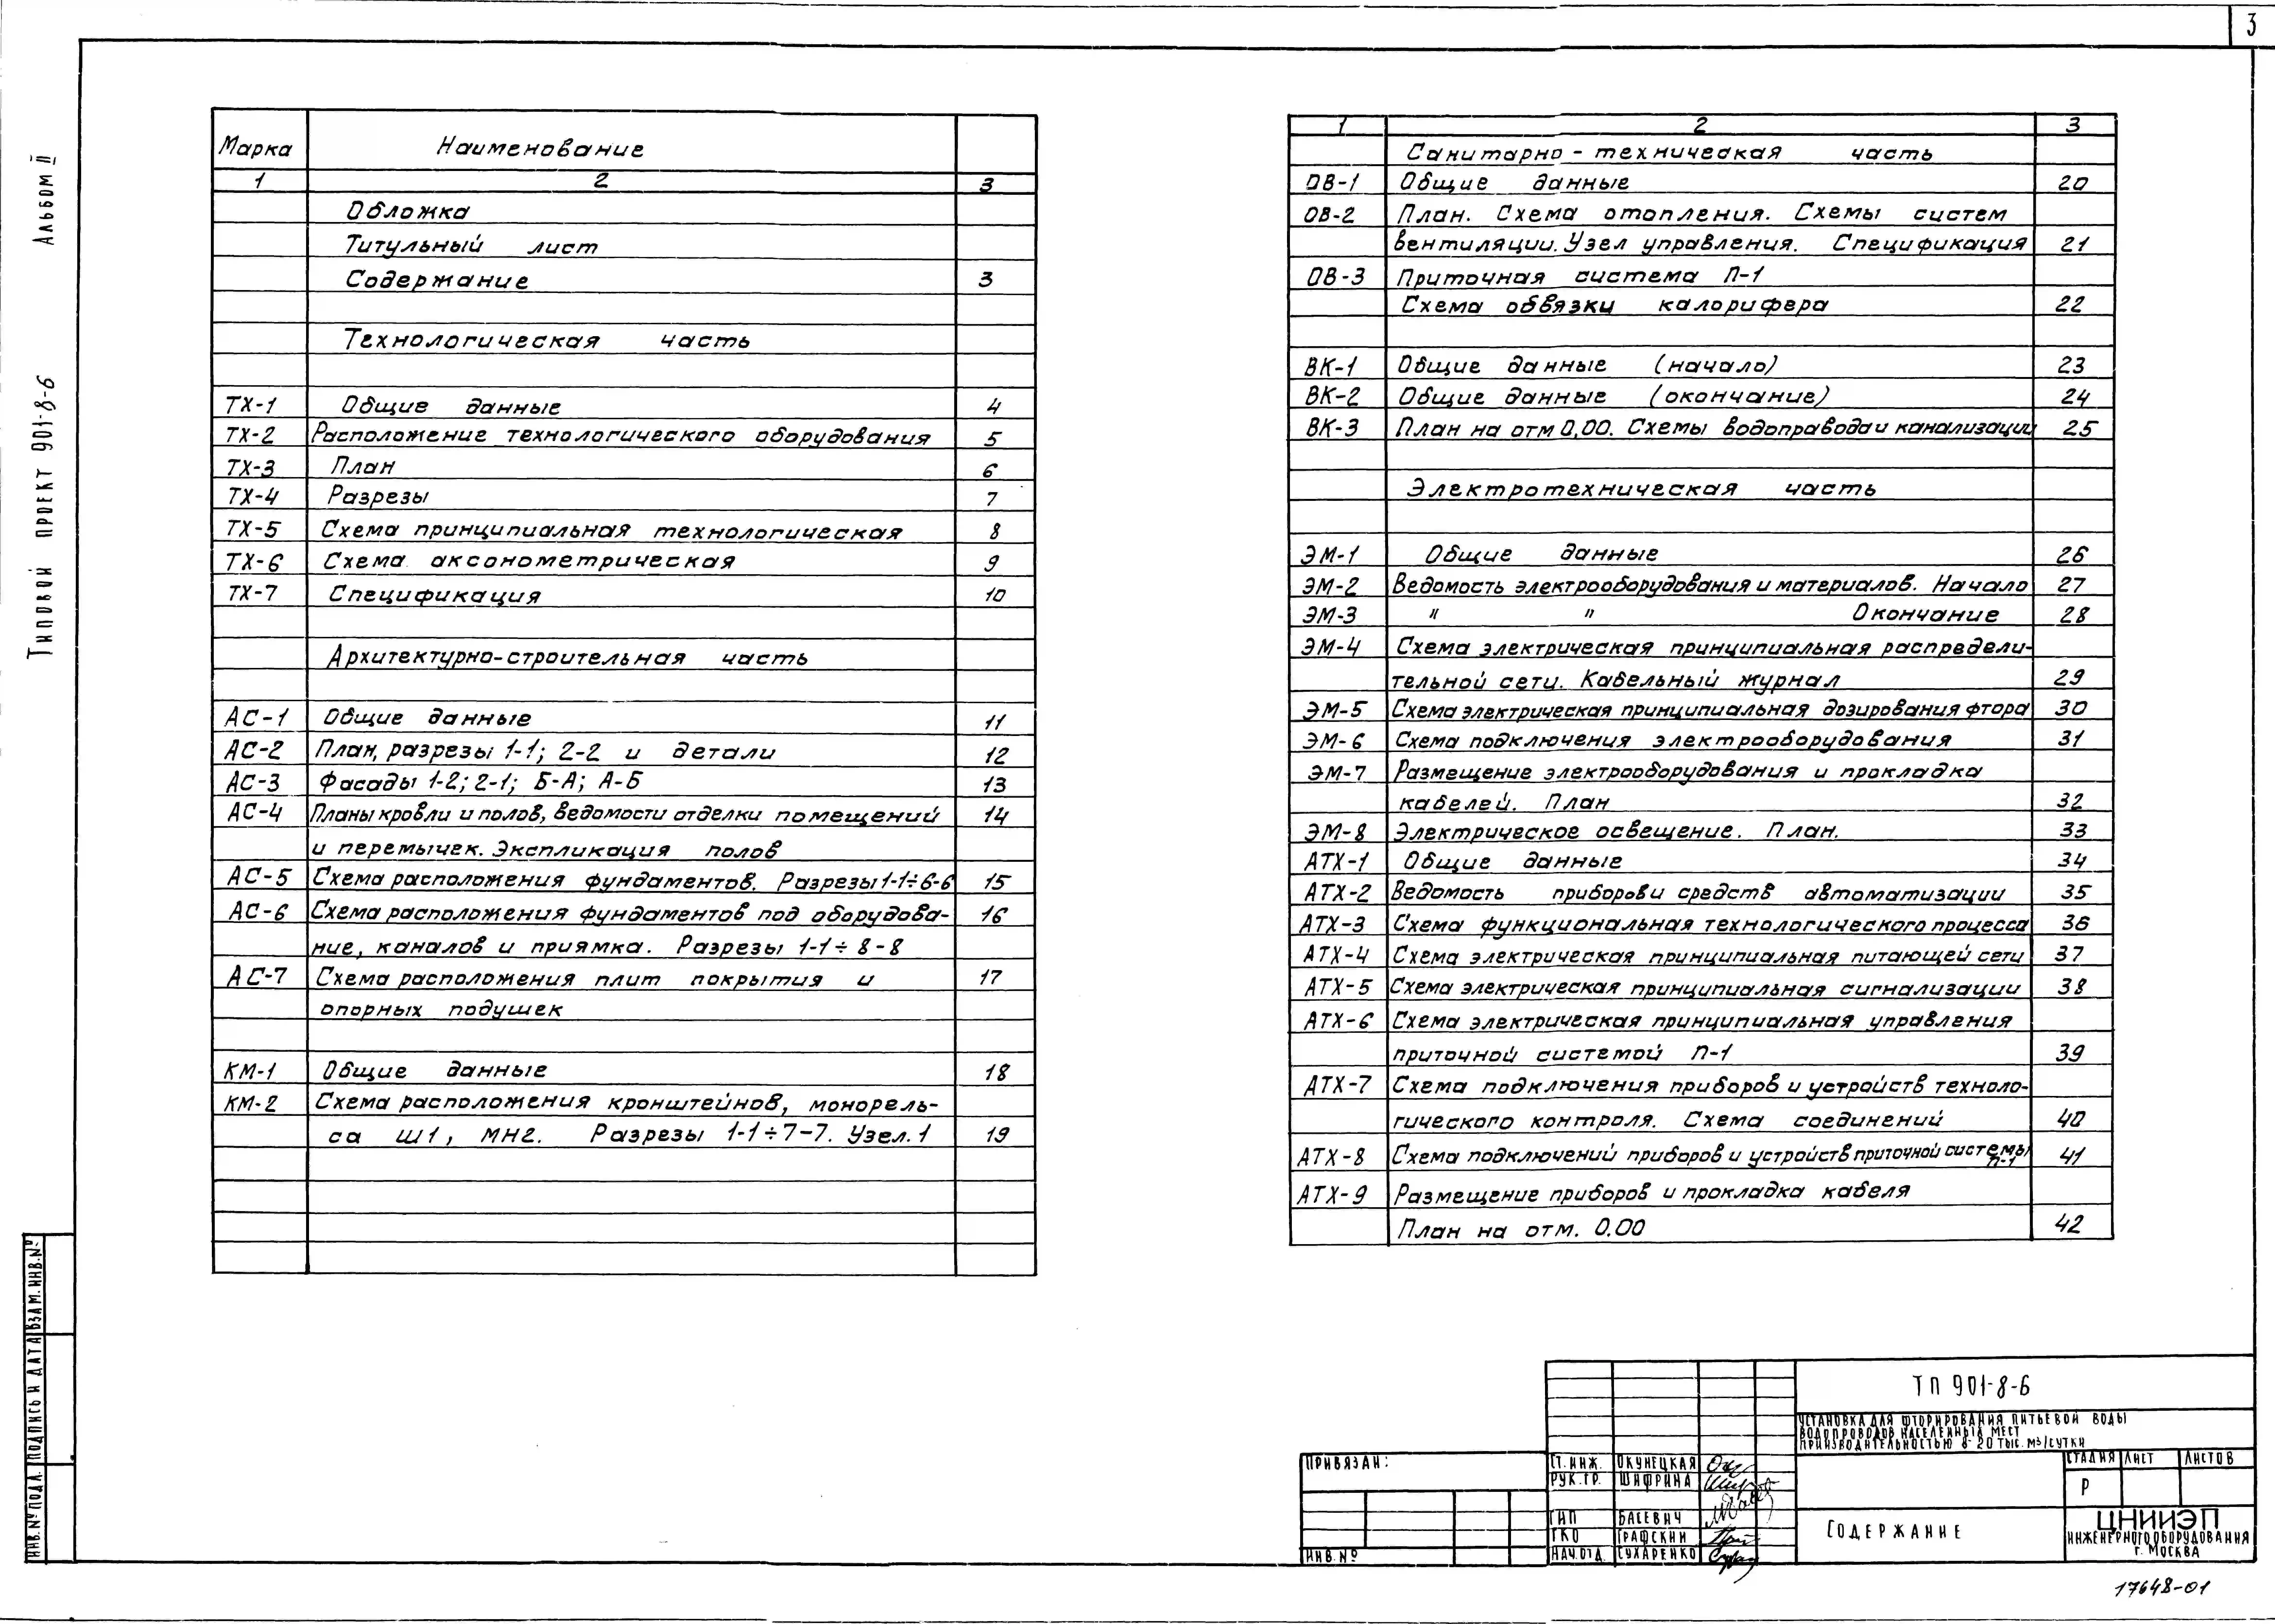 3
Альбом II
Типовой проект 901-8-6
Марка Наименование
1 2 3
Обложка
Титульный лист
Содержание 3
Технологическая часть
ТХ-1 Общие данные 4
ТХ-2 Расположение технологического оборудования 5
ТХ-3 План 6
ТХ-4 Разрезы 7
ТХ-5 Схема принципиальная технологическая 8
ТХ-6 Схема аксонометрическая 9
ТХ-7 Спецификация 10
Архитектурно-строительная часть
АС-1 Общие данные 11
АС-2 План, разрезы 1-1; 2-2 и детали 12
АС-3 Фасады 1-2; 2-1; Б-А; А-Б 13
АС-4 Планы кровли и полов, ведомости отделки помещений 14
и перемычек. Экспликация полов
АС-5 Схема расположения фундаментов. Разрезы 1-1÷6-6 15
АС-6 Схема расположения фундаментов под оборудова- 16
ние, каналов и приямка. Разрезы 1-1÷8-8
АС-7 Схема расположения плит покрытия и 17
опорных подушек
КМ-1 Общие данные 18
КМ-2 Схема расположения кронштейнов, монорель-
са Ш1, МН2. Разрезы 1-1÷7-7. Узел.1 19
1 2 3
Санитарно-техническая часть
ОВ-1 Общие данные 20
ОВ-2 План. Схема отопления. Схемы систем
вентиляции. Узел управления. Спецификация 21
ОВ-3 Приточная система П-1
Схема обвязки калорифера 22
ВК-1 Общие данные (начало) 23
ВК-2 Общие данные (окончание) 24
ВК-3 План на отм 0,00. Схемы водопровода и канализации 25
Электротехническая часть
ЭМ-1 Общие данные 26
ЭМ-2 Ведомость электрооборудования и материалов. Начало 27
ЭМ-3 " " Окончание 28
ЭМ-4 Схема электрическая принципиальная распредели-
тельной сети. Кабельный журнал 29
ЭМ-5 Схема электрическая принципиальная дозирования фтора 30
ЭМ-6 Схема подключения электрооборудования 31
ЭМ-7 Размещение электрооборудования и прокладка
кабелей. План 32
ЭМ-8 Электрическое освещение. План. 33
АТХ-1 Общие данные 34
АТХ-2 Ведомость приборов и средств автоматизации 35
АТХ-3 Схема функциональная технологического процесса 36
АТХ-4 Схема электрическая принципиальная питающей сети 37
АТХ-5 Схема электрическая принципиальная сигнализации 38
АТХ-6 Схема электрическая принципиальная управления
приточной системой П-1 39
АТХ-7 Схема подключения приборов и устройств техноло-
гического контроля. Схема соединений 40
АТХ-8 Схема подключений приборов и устройств приточной системы П-1 41
АТХ-9 Размещение приборов и прокладка кабеля
План на отм. 0.00 42
Инв.№ подл. Подпись и дата Взам.инв.№
Привязан:
Инв.№
Ст.инж. Окунецкая
Рук.гр. Шифрина
ГИП Басевич
ГКО Графский
Нач.отд. Сухаренко
ТП 901-8-6
Установка для фторирования питьевой воды
водопроводов населенных мест
производительностью 8-20 тыс. м3/сутки
Стадия Лист Листов
Р
Содержание
ЦНИИЭП
инженерного оборудования
г. Москва
17648-01